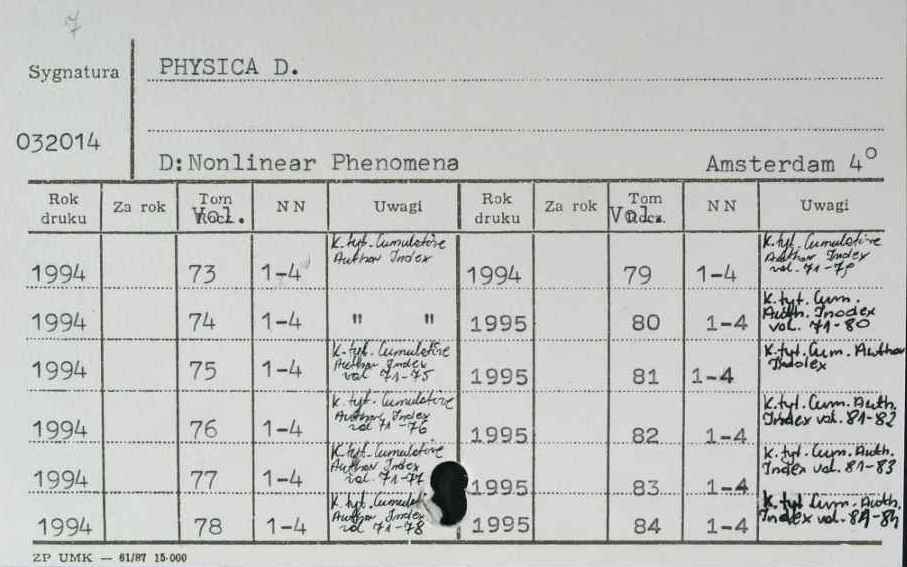 7
Sygnatura PHYSICA D.
032014
D:Nonlinear Phenomena Amsterdam 4°
Rok druku Za rok Tom Vol. NN Uwagi Rok druku Za rok Tom NN Uwagi
1994 73 1-4 K.tyt. Cumulative Author Index 1994 79 1-4 K.tyt. Cumulative Author Index vol. 71-79
1994 74 1-4 " " 1995 80 1-4 K.tyt. Cum. Auth. Inodex vol. 71-80
1994 75 1-4 K.tyt. Cumulative Author Index vol 71-75 1995 81 1-4 K.tyt. Cum. Author Index
1994 76 1-4 K.tyt. Cumulative Author Index vol 71-76 1995 82 1-4 K.tyt. Cum. Auth. Index vol. 81-82
1994 77 1-4 K.tyt. Cumulative Author Index vol. 71-77 1995 83 1-4 K.tyt. Cum. Auth. Index vol. 81-83
1994 78 1-4 K.tyt. Cumulat Author Index vol 71-78 1995 84 1-4 K.tyt. Cum. Auth. Index vol. 81-84
ZP UMK — 61/87 15·000